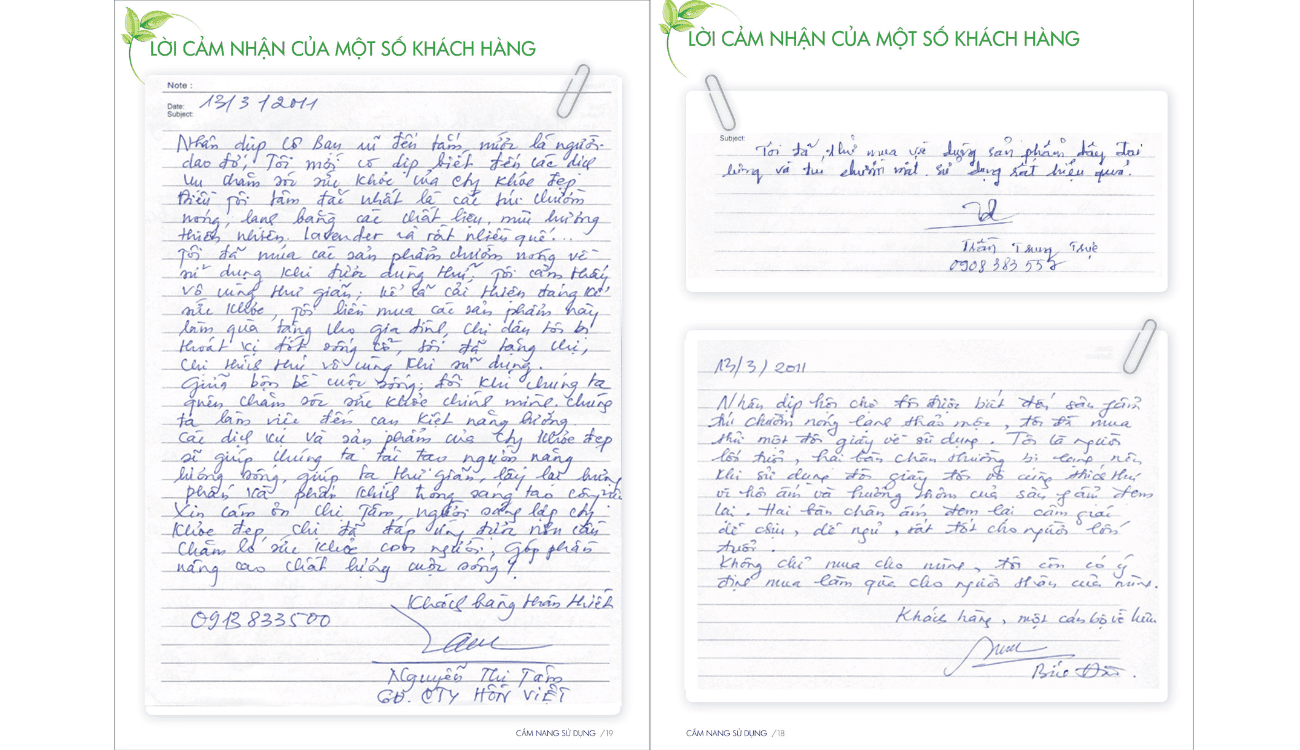 LỜI CẢM NHẬN CỦA MỘT SỐ KHÁCH HÀNG
Note :
Date: 13/3/2011
Subject:
Nhân dịp cô bạn đến tắm, mức là người
dao đỏ, Tôi mới có dịp biết đến các dịch
vụ chăm sóc sức khỏe của Cty Khỏe đẹp
Điều tôi tâm đắc nhất là các túi chườm
nóng, lạnh bằng các chất liệu, mùi hương
thiên nhiên. lavender và rất nhiều quế...
Tôi đã mua các sản phẩm chườm nóng về
sử dụng khi được dùng thử, Tôi cảm thấy
vô cùng thư giãn, kể cả cải thiện đáng kể
sức khỏe, Tôi liền mua các sản phẩm này
làm quà tặng cho gia đình, chị dâu tôi bị
thoát vị đốt sống cổ, tôi đã tặng chị,
chị thích thú vô cùng khi sử dụng.
Giữa bộn bề cuộc sống, đôi khi chúng ta
quên chăm sóc sức khỏe chính mình. chúng
ta làm việc đến cạn kiệt năng lượng.
Các dịch vụ và sản phẩm của Cty Khỏe đẹp
sẽ giúp chúng ta tái tạo nguồn năng
lượng sống, giúp ta thư giãn, lấy lại hưng
phấn và phấn khích trong sáng tạo công việc
Xin cám ơn chị Tâm, người sáng lập Cty
Khỏe đẹp, chị đã đáp ứng được nhu cầu
chăm lo sức khỏe con người, góp phần
nâng cao chất lượng cuộc sống!
Khách hàng thân thiết
0913833500
Nguyễn Thị Tám
GĐ. CTY HỒN VIỆT
CẨM NANG SỬ DỤNG /19
LỜI CẢM NHẬN CỦA MỘT SỐ KHÁCH HÀNG
Subject:
Tôi đã thử mua về dụng sản phẩm dây đai
lưng và túi chườm mắt. sử dụng rất hiệu quả.
Trần Trung Trực
0908 383 557
13/3/2011
Nhân dịp hội chợ tôi được biết đến sản phẩm
túi chườm nóng lạnh thảo mộc, tôi đã mua
thử một đôi giày về sử dụng. Tôi là người
lớn tuổi, hai bàn chân thường bị lạnh nên
khi sử dụng đôi giày tôi vô cùng thích thú
vì hơi ấm và hương thơm của sản phẩm đem
lại. Hai bàn chân ấm đem lại cảm giác
dễ chịu, dễ ngủ, rất tốt cho người lớn
tuổi.
Không chỉ mua cho mình, tôi còn có ý
định mua làm quà cho người thân của mình.
Khách hàng, một cán bộ về hưu
CẨM NANG SỬ DỤNG /18